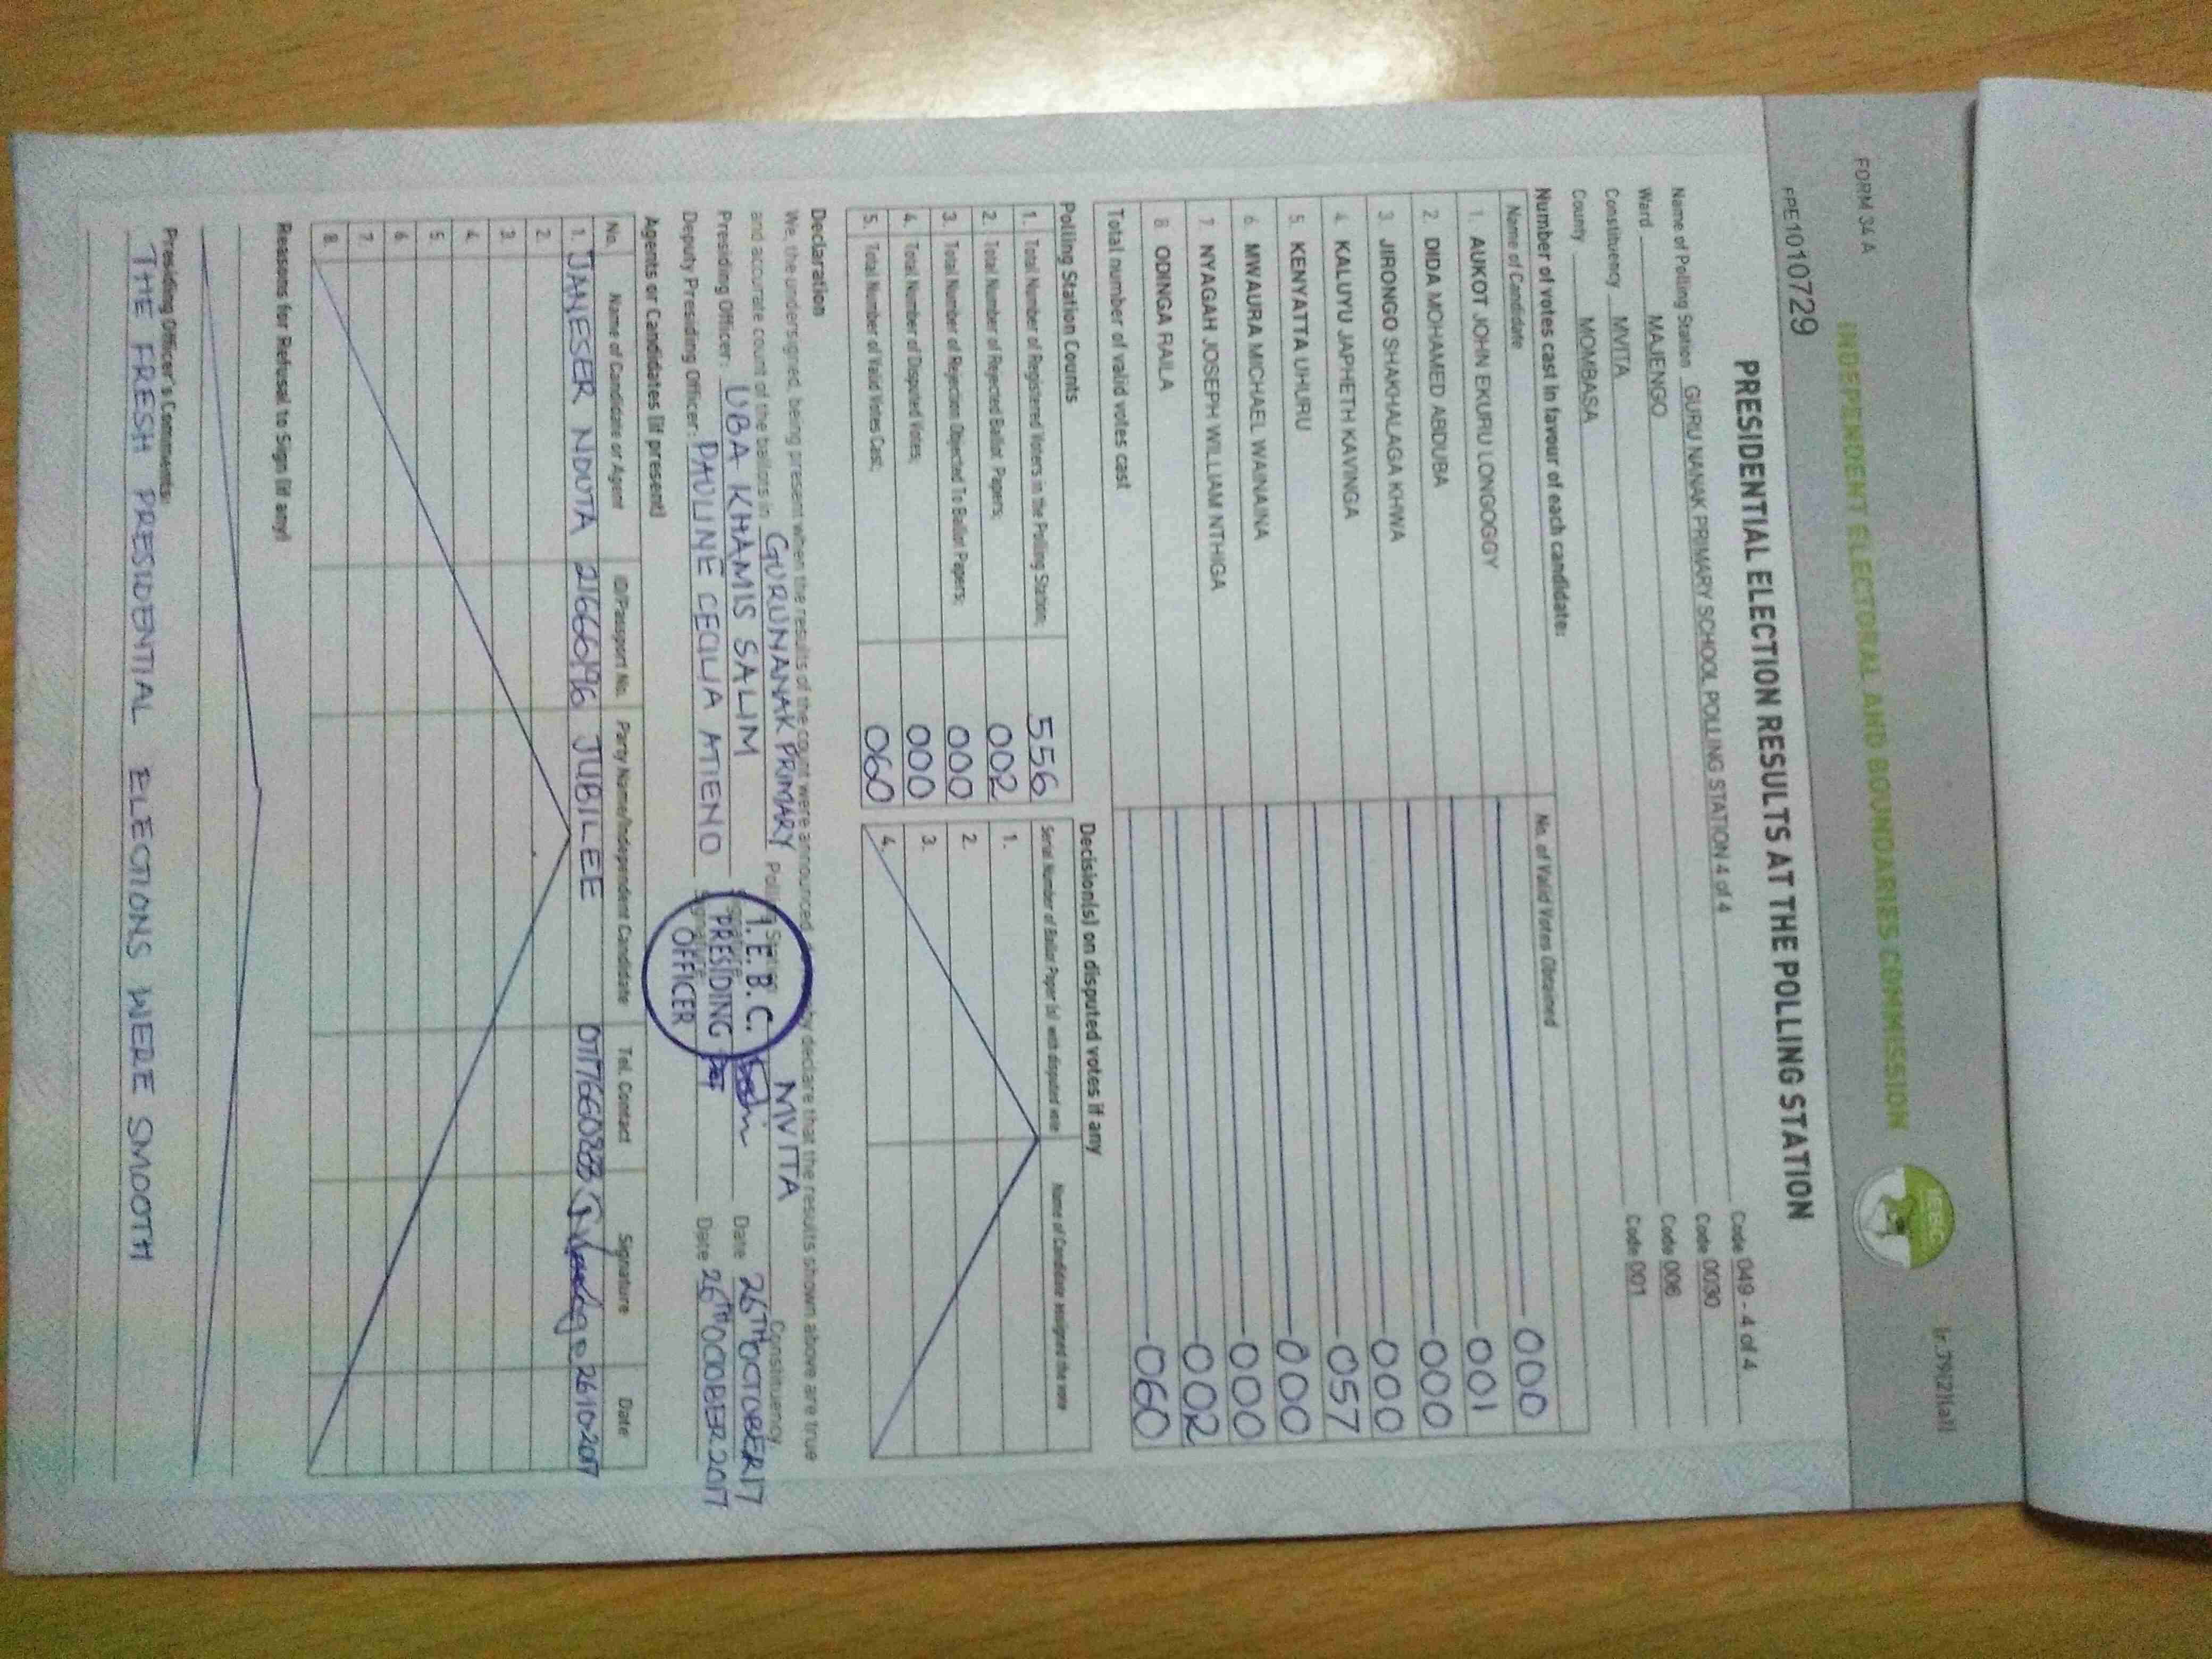 FORM 34 A
INDEPENDENT ELECTORAL AND BOUNDARIES COMMISSION
IEBC
PE1010729
PRESIDENTIAL ELECTION RESULTS AT THE POLLING STATION
Name of Polling Station GURU NANAK PRIMARY SCHOOL POLLING STATION 4 of 4 Code 049 - 4 of 4
Ward MAJENGO Code 0030
Constituency MVITA Code 006
County MOMBASA Code 001
Number of votes cast in favour of each candidate:
Name of Candidate No. of Valid Votes Obtained
1. AUKOT JOHN EKURU LONGOGGY 000
2. DIDA MOHAMED ABDUBA 001
3. JIRONGO SHAKHALAGA KHWA 000
4. KALUYU JAPHETH KAVINGA 000
5. KENYATTA UHURU 057
6. MWAURA MICHAEL WAINAINA 000
7. NYAGAH JOSEPH WILLIAM NTHIGA 000
8 ODINGA RAILA 002
Total number of valid votes cast 060
Polling Station Counts
1. Total Number of Registered Voters in the Polling Station; 556
2. Total Number of Rejected Ballot Papers; 002
3. Total Number of Rejection Objected To Ballot Papers; 000
4. Total Number of Disputed Votes; 000
5. Total Number of Valid Votes Cast; 060
Decision(s) on disputed votes if any
Serial Number of Ballot Paper (s) with disputed vote Name of Candidate assigned the vote
1.
2
3.
4.
Declaration
We, the undersigned, being present when the results of the count were announced, by declare that the results shown above are true
and accurrate count of the ballots in GURUNANAK PRIMARY Polling MVITTA Constituency
Presiding Officer: UBA KHAMIS SALIM Date 26TH OCTOBER17
Deputy Presiding Officer: PAULINE CECILIA ATIENO Signature Date 26TH OCOOBER 2017
I. E. B. C.
PRESIDING
OFFICER
Agents or Candidates (if present)
No. Name of Candidate or Agent ID/Passport No. Party Name/Independent Candidate Tel. Contact Signature Date
1. JANESER NDUTA JUBILEE 26102017
2.
3.
4.
5.
6.
7.
8.
Reasons for Refusal to Sign (if any)
Presiding Officer's Comments:
THE FRESH PRESIDENTIAL ELECTIONS WERE SMOOTH